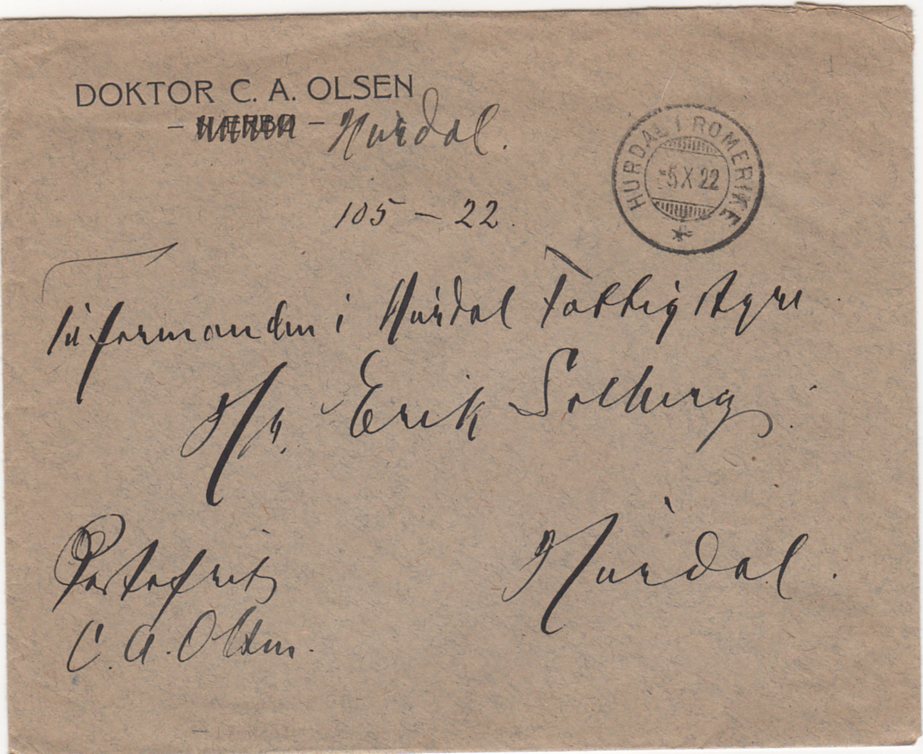 DOKTOR C. A. OLSEN
– NÆRBØ – Hurdal.
HURDAL I ROMERIKE
5 X 22
105 – 22.
Til formanden i Hurdal Fattigstyre.
Hr. Erik Solberg.
Hurdal.
Portofrit
C. A. Olsen.